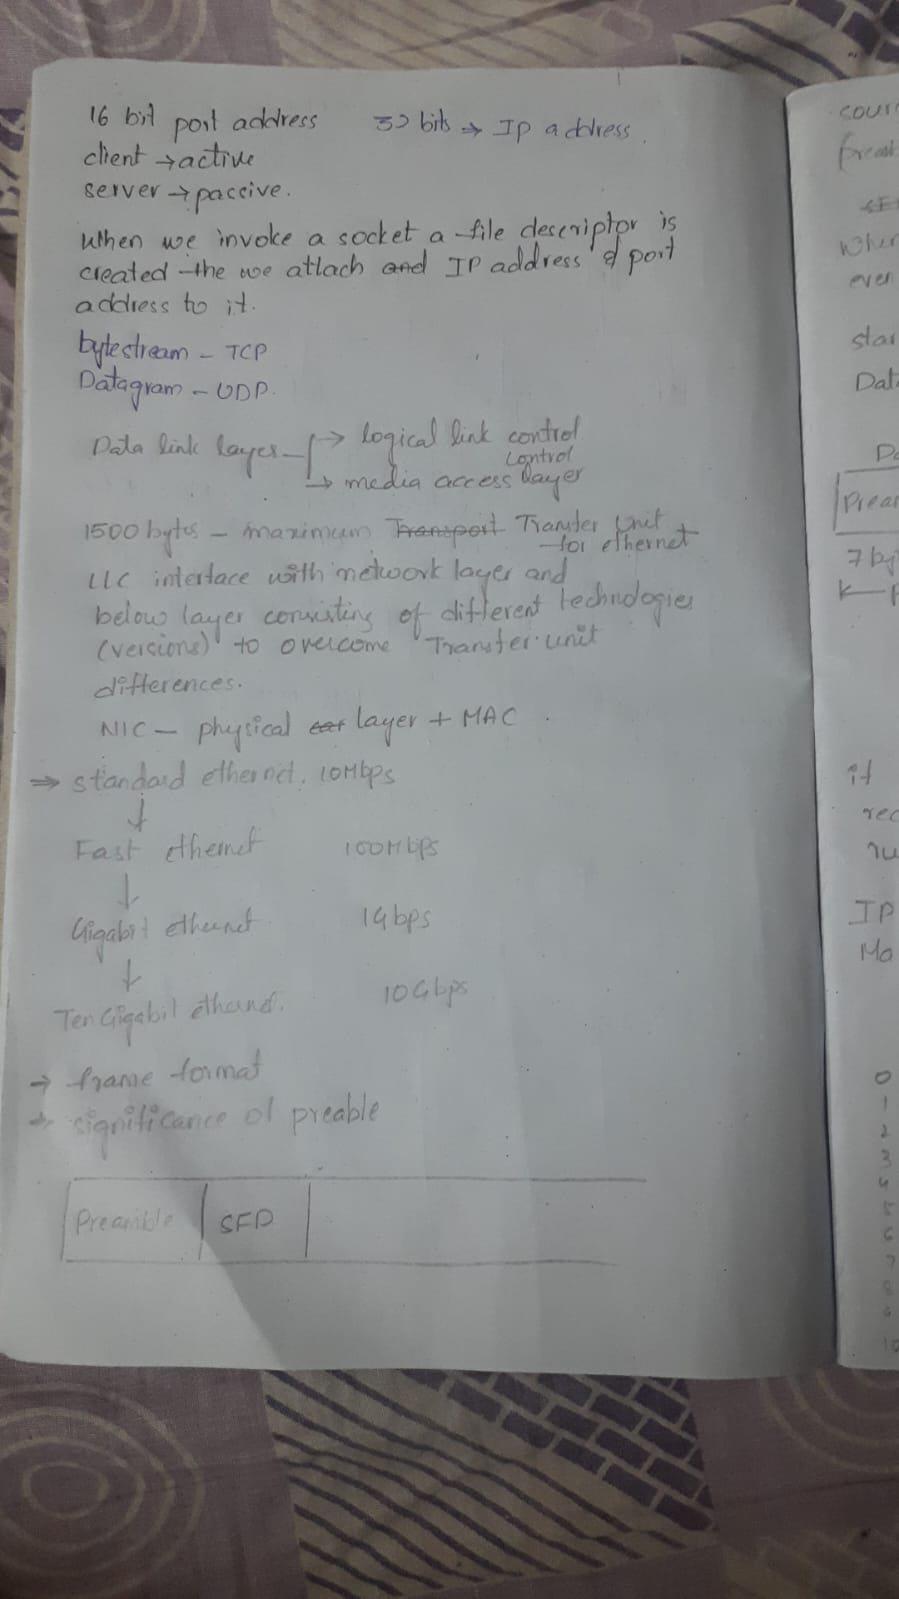 16 bit port address 32 bits → Ip address.
client → active
server → passive.
When we invoke a socket a file descriptor is
created the we attach and IP address & port
address to it.
bytestream - TCP
Datagram - UDP.
Data link layer → logical link control
control
→ media access layer
1500 bytes - maximum Transport Transfer Unit
for ethernet
LLC interface with network layer and
below layer consisting of different technologies
(versions) to overcome Transfer unit
differences.
NIC - physical layer + MAC
⇒ standard ethernet. 10Mbps
↓
Fast ethernet 100Mbps
↓
Gigabit ethernet 1Gbps
↓
Ten Gigabit ethernet. 10Gbps
→ frame format
→ significance of preable
Preamble SFD
cour
when
even
star
Dat
Prear
7 by
it
rec
IP
Ma
0
1
2
3
4
5
6
7
8
9
10